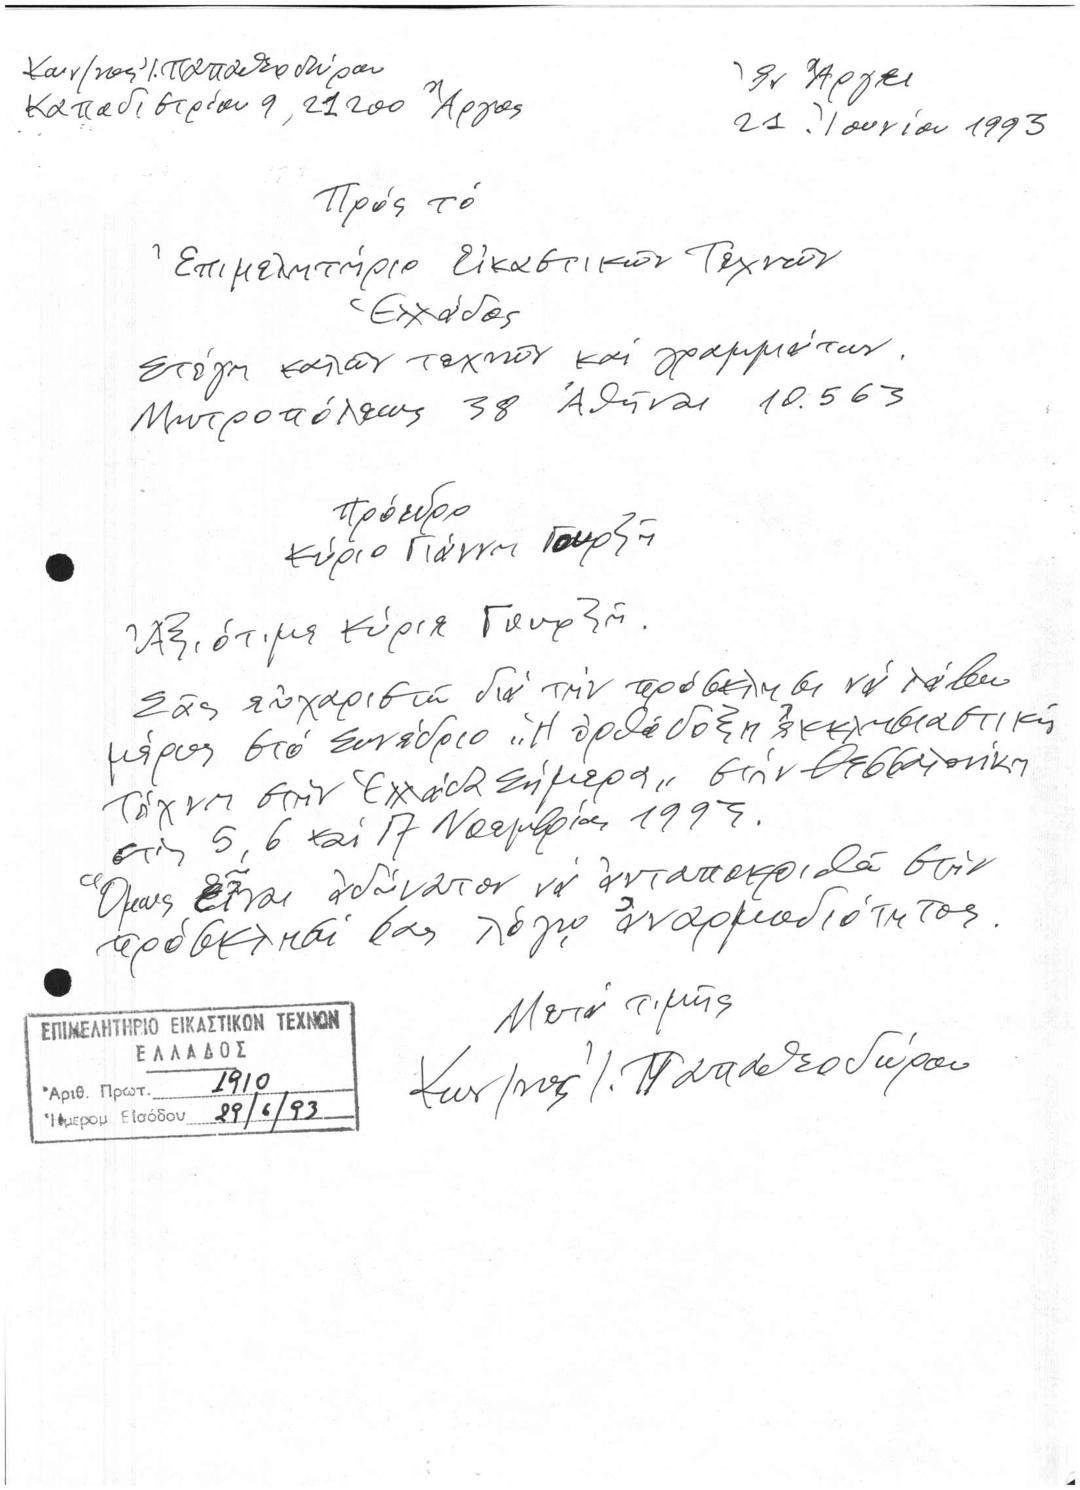 Κων/νος Ι. Παπαθεοδώρου
Καποδιστρίου 9, 21200 Ἄργος
Ἐν Ἄργει
21 Ἰουνίου 1993
Πρός τό
Ἐπιμελητήριο Εἰκαστικῶν Τεχνῶν
Ἑλλάδος
Στέγη καλῶν τεχνῶν καί γραμμάτων.
Μητροπόλεως 38 Ἀθῆναι 10.563
Πρόεδρο
Κύριο Γιάννη Γουρζῆ
Ἀξιότιμε Κύριε Γουρζῆ.
Σᾶς εὐχαριστῶ διά τήν πρόσκλησι νά λάβω
μέρος στό Συνέδριο „Ἡ ὀρθόδοξη ἐκκλησιαστική
τέχνη στήν Ἑλλάδα Σήμερα„ στήν Θεσσαλονίκη
στίς 5, 6 καί 7 Νοεμβρίου 1993.
Ὅμως εἶναι ἀδύνατον νά ἀνταποκριθῶ στήν
πρόσκλησί σας λόγῳ ἀναρμοδιότητος.
Μετά τιμῆς
Κων/νος Ι. Παπαθεοδώρου
ΕΠΙΜΕΛΗΤΗΡΙΟ ΕΙΚΑΣΤΙΚΩΝ ΤΕΧΝΩΝ
ΕΛΛΑΔΟΣ
Ἀριθ. Πρωτ. 1910
Ἡμερομ Εἰσόδου 29/6/93